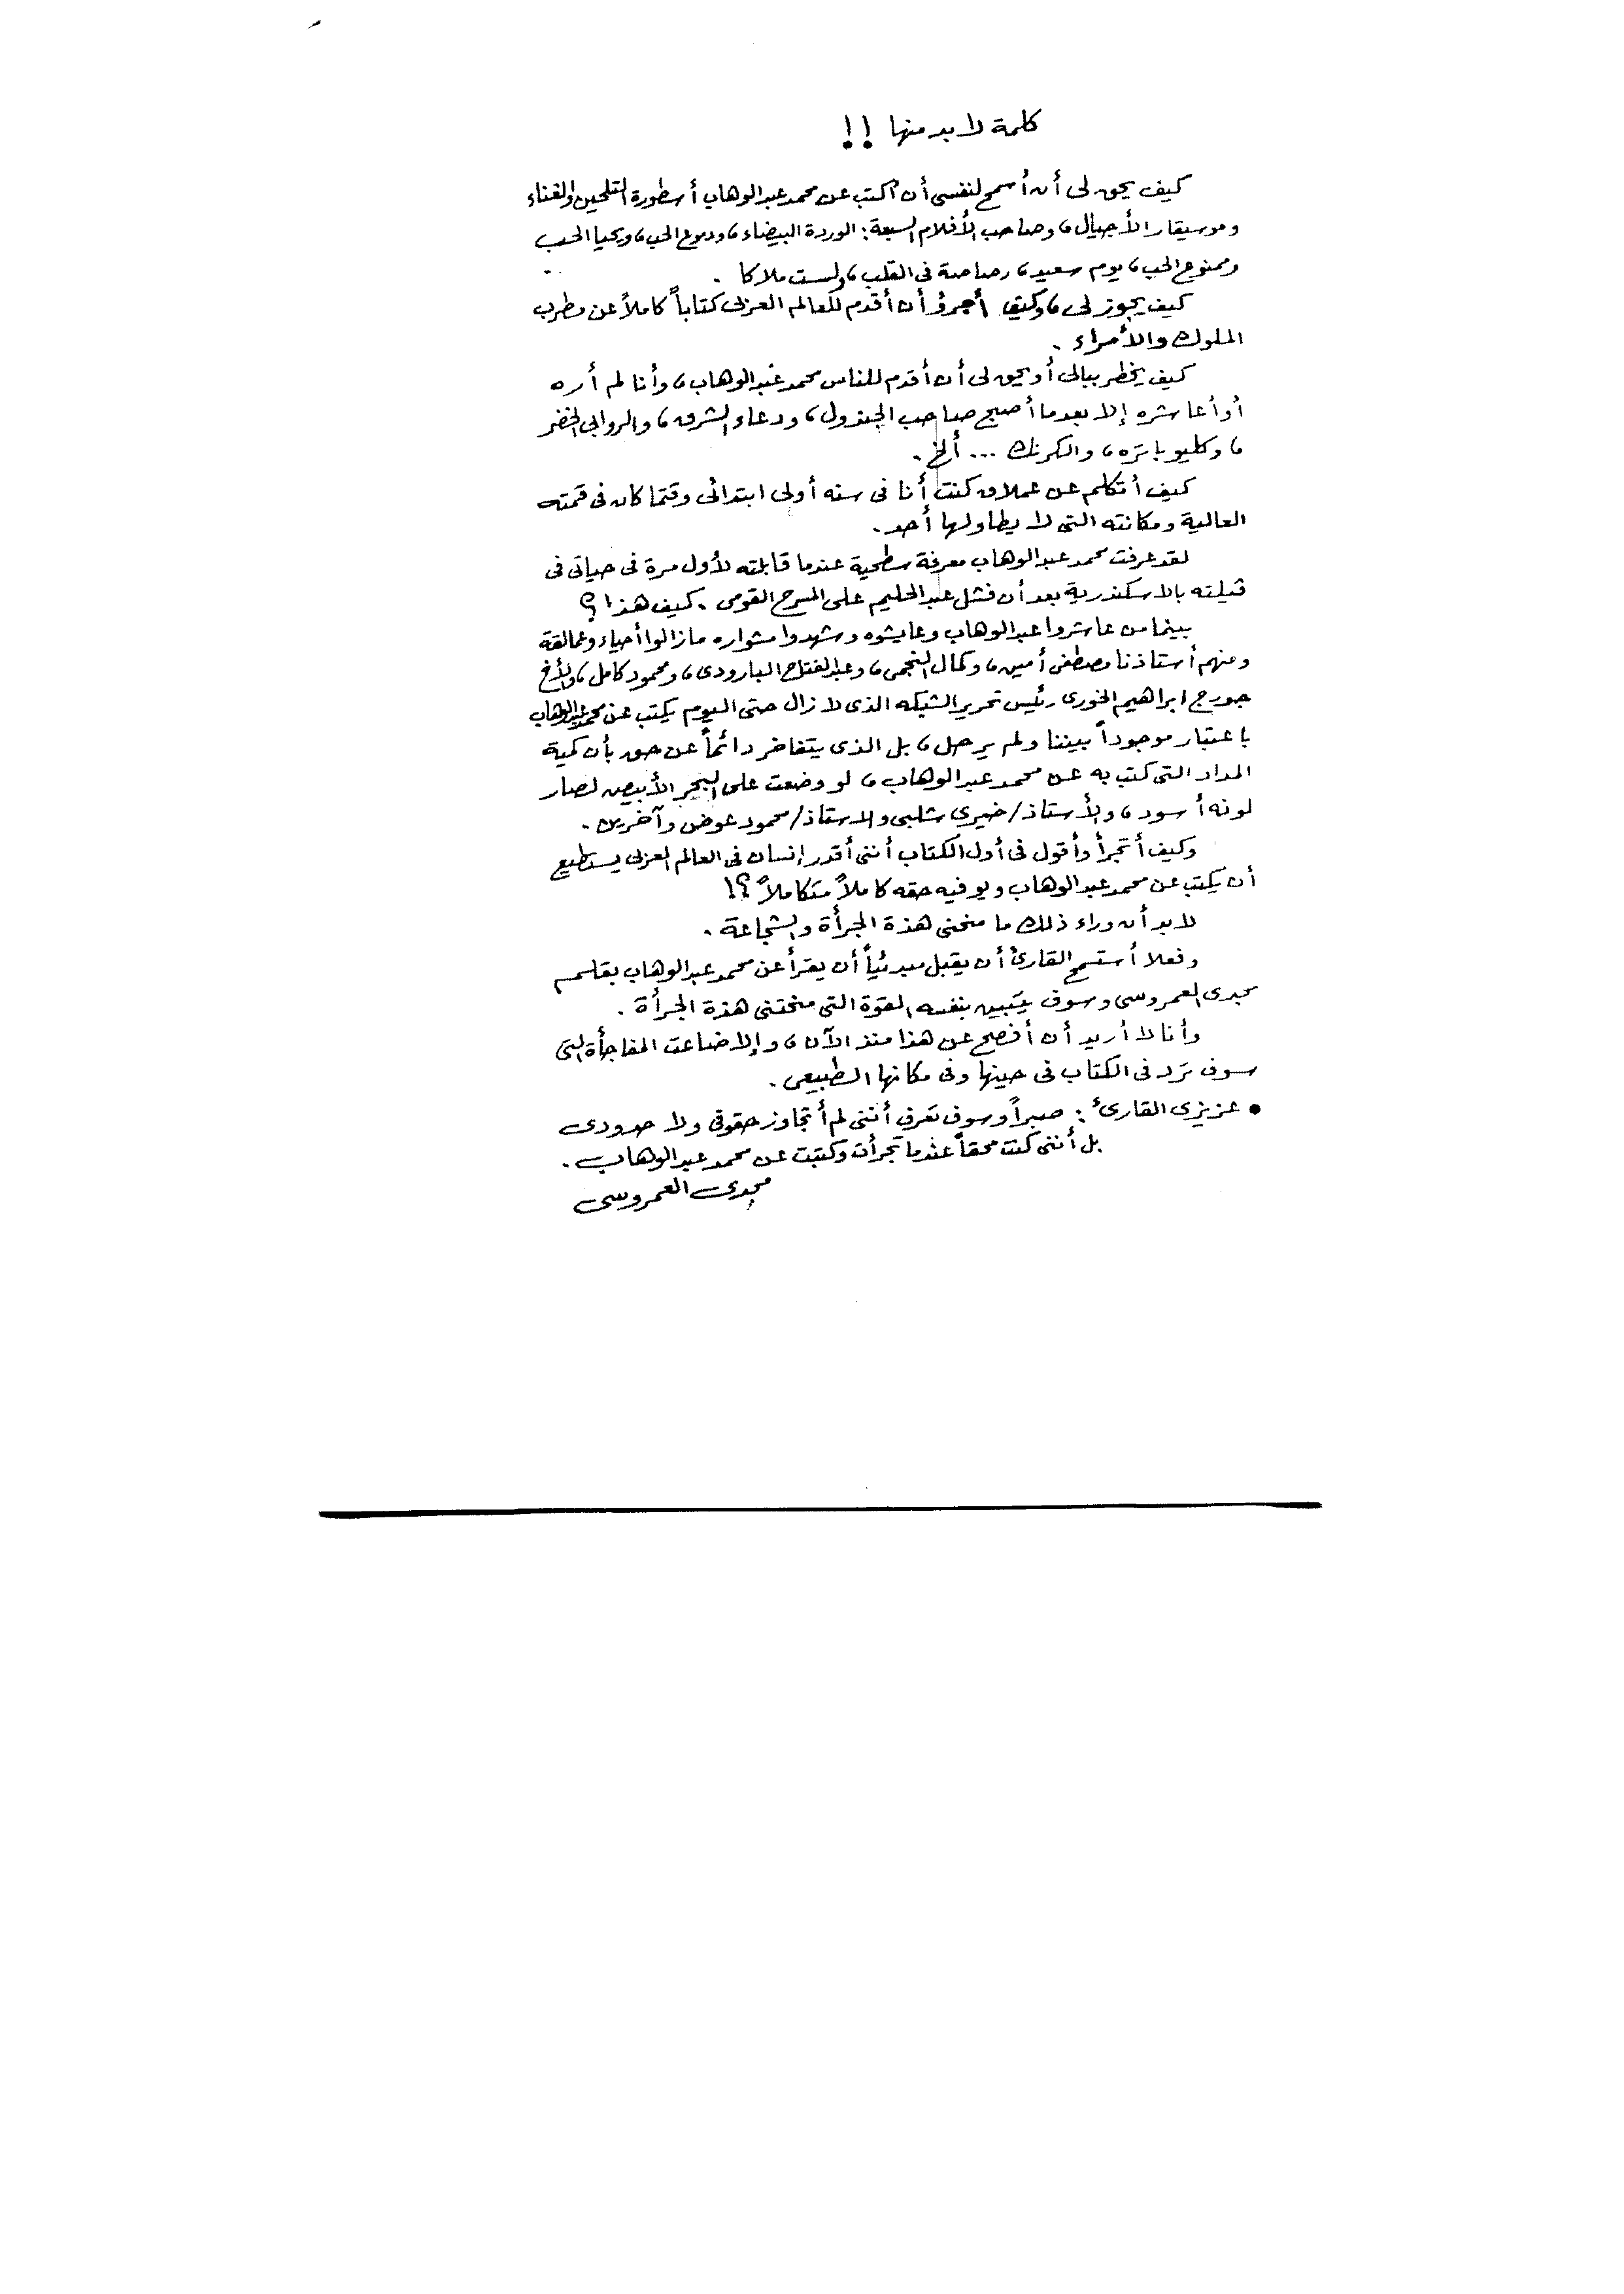 كلمة لابد منها !!
كيف يحق لى أن أسمح لنفسى أن أكتب عن محمد عبد الوهاب أسطورة التلحين والغناء
وموسيقار الأجيال ، وصاحب الأفلام السبعة : الوردة البيضاء ، ودموع الحب ، ويحيا الحب
وممنوع الحب ، يوم سعيد ، رصاصة فى القلب ، ولست ملاكا .
كيف يجوز لى ، وكيف أجرؤ أن أقدم للعالم العربى كتاباً كاملاً عن مطرب
الملوك والأمراء .
كيف يخطر ببالى أو يحق لى أن أقدم للناس محمد عبد الوهاب ، وأنا لم أره
أو أعاشره إلا بعدما أصبح صاحب الجندول ، ودعاء الشرق ، والروابى الخضر
، وكليوباتره ، والكرنك ... ألخ .
كيف أتكلم عن عملاق كنت أنا فى سنه أولى ابتدائى وقتما كان فى قمته
العالية ومكانته التى لا يطاولها أحد .
لقد عرفت محمد عبد الوهاب معرفة سطحية عندما قابلته لأول مرة فى حياتى فى
فيلته بالاسكندرية بعد أن فشل عبد الحليم على المسرح القومى . كيف هذا ؟
بينما من عاشروا عبد الوهاب وعايشوه وشهدوا مشواره مازالوا أحياء وعمالقة
ومنهم أستاذنا مصطفى أمين ، وكمال النجمى ، وعبد الفتاح البارودى ، ومحمود كامل ، والأخ
جورج ابراهيم الخورى رئيس تحرير الشبكه الذى لا زال حتى اليوم يكتب عن محمد عبد الوهاب
باعتبار موجوداً بيننا ولم يرحل ، بل الذى يتفاخر دائماً عن حق بأن كمية
المداد التى كتب به عن محمد عبد الوهاب ، لو وضعت على البحر الأبيض لصار
لونه أسود ، والأستاذ/ خيرى شلبى والاستاذ/ محمود عوض وآخرين .
وكيف أتجرأ وأقول فى أول الكتاب أننى أقدر إنسان فى العالم العربى يستطيع
أن يكتب عن محمد عبد الوهاب ويوفيه حقه كاملاً متكاملاً ؟!
لابد أن وراء ذلك ما منحنى هذة الجرأة والشجاعة .
وفعلا أستسمح القارئ أن يقبل مبدئياً أن يقرأ عن محمد عبد الوهاب بقلم
مجدى العمروسى وسوف يتبين بنفسه القوة التى منحتنى هذة الجرأة .
وأنا لا أريد أن أفصح عن هذا منذ الآن ، وإلا ضاعت المفاجأة التى
سوف ترد فى الكتاب فى حينها وفى مكانها الطبيعى .
• عزيزى القارئ : صبراً وسوف تعرف أننى لم أتجاوز حقوقى ولا حدودى
بل أننى كنت محقاً عندما تجرأت وكتبت عن محمد عبد الوهاب .
مجدى العمروسى